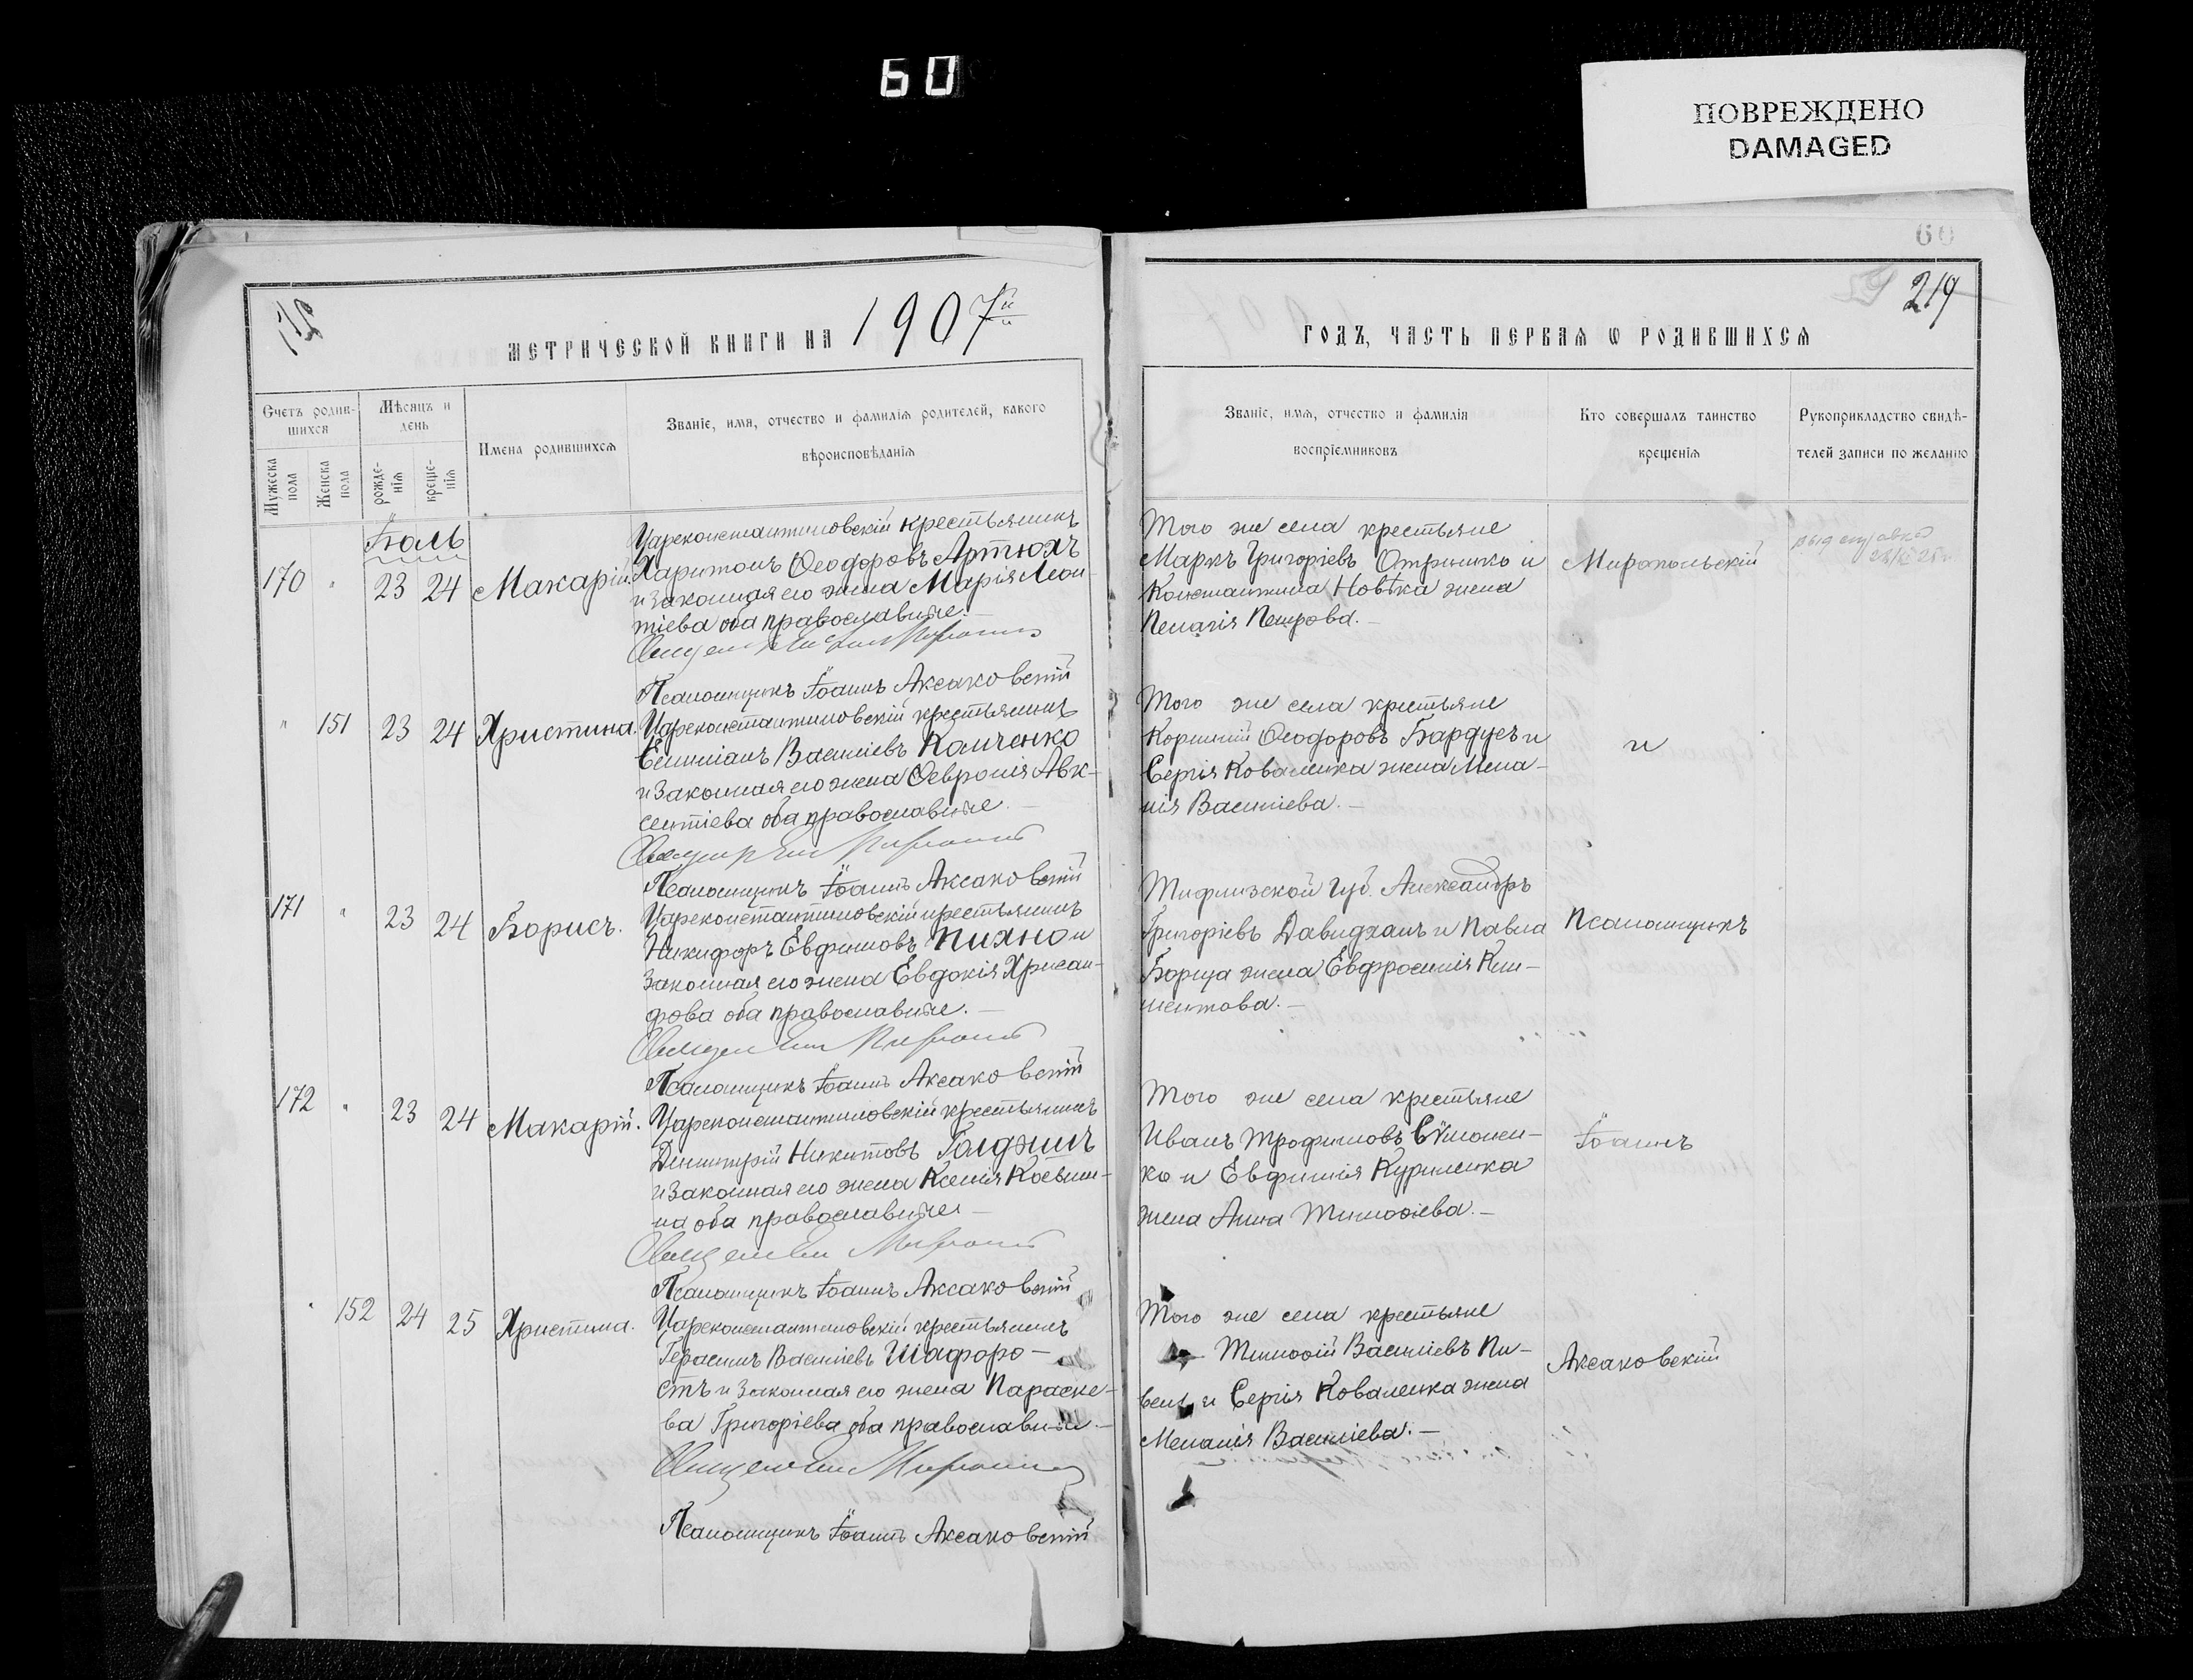 60
ПОВРЕЖДЕНО
DAMAGED
60
219
МЕТРИЧЕСКОЙ КНИГИ НА 1907й
ГОДЪ, ЧАСТЬ ПЕРВАЯ Ѡ РОДИВШИХСЯ
Счетъ родив-
шихся
Мужеска пола
Женска пола
Мѣсяцъ и
день
рожде-
нія
креще-
нія
Имена родившихся
Званіе, имя, отчество и фамилія родителей, какого
вѣроисповѣданія
Званіе, имя, отчество и фамилія
воспріемниковъ
Кто совершалъ таинство
крещенія
Рукоприкладство свидѣ-
телей записи по желанію
Іюль
170 " 23 24 Макарій.
Цареконстантиновскій крестьянинъ
Харитонъ Ѳеодоровъ Артюхъ
и законная его жена Марія Леон-
тіева оба православные.-
Псаломщикъ Іоаннъ Аксаковскій
Того же села крестьяне
Маркъ Григоріевъ Отришко и
Константина Новѣка жена
Пелагія Петрова.-
Миропольскій
" 151 23 24 Христина.
Цареконстантиновскій крестьянинъ
Емиліанъ Василіевъ Колченко
и законная его жена Ѳевронія Авк-
сентіева оба православные.-
Псаломщикъ Іоаннъ Аксаковскій
Того же села крестьяне
Корнилій Ѳеодоровъ Бардусъ и
Сергія Коваленка жена Мела-
нія Василіева.-
и
171 " 23 24 Борисъ.
Цареконстантиновскій крестьянинъ
Никифоръ Евфимовъ Пихно и
законная его жена Евдокія Хрисан-
фова оба православные.-
Псаломщикъ Іоаннъ Аксаковскій
Тифлизской губ. Александръ
Григоріевъ Давидханъ и Павла
Борща жена Евфросинія Кли-
ментова.-
Псаломщикъ
172 " 23 24 Макарій.
Цареконстантиновскій крестьянинъ
Димитрій Никитовъ Голджинъ
и законная его жена Ксенія Косьми-
на оба православные.-
Псаломщикъ Іоаннъ Аксаковскій
Того же села крестьяне
Иванъ Трофимовъ Сѵмонен-
ко и Евфимія Куриленка
жена Анна Тимоѳіева.-
Іоаннъ
" 152 24 25 Христина.
Цареконстантиновскій крестьянинъ
Герасимъ Василіевъ Шафоро-
стъ и законная его жена Параске-
ва Григоріева оба православные.-
Псаломщикъ Іоаннъ Аксаковскій
Того же села крестьяне
Тимоѳій Василіевъ Пи-
вень и Сергія Коваленка жена
Меланія Василіева.-
Аксаковскій